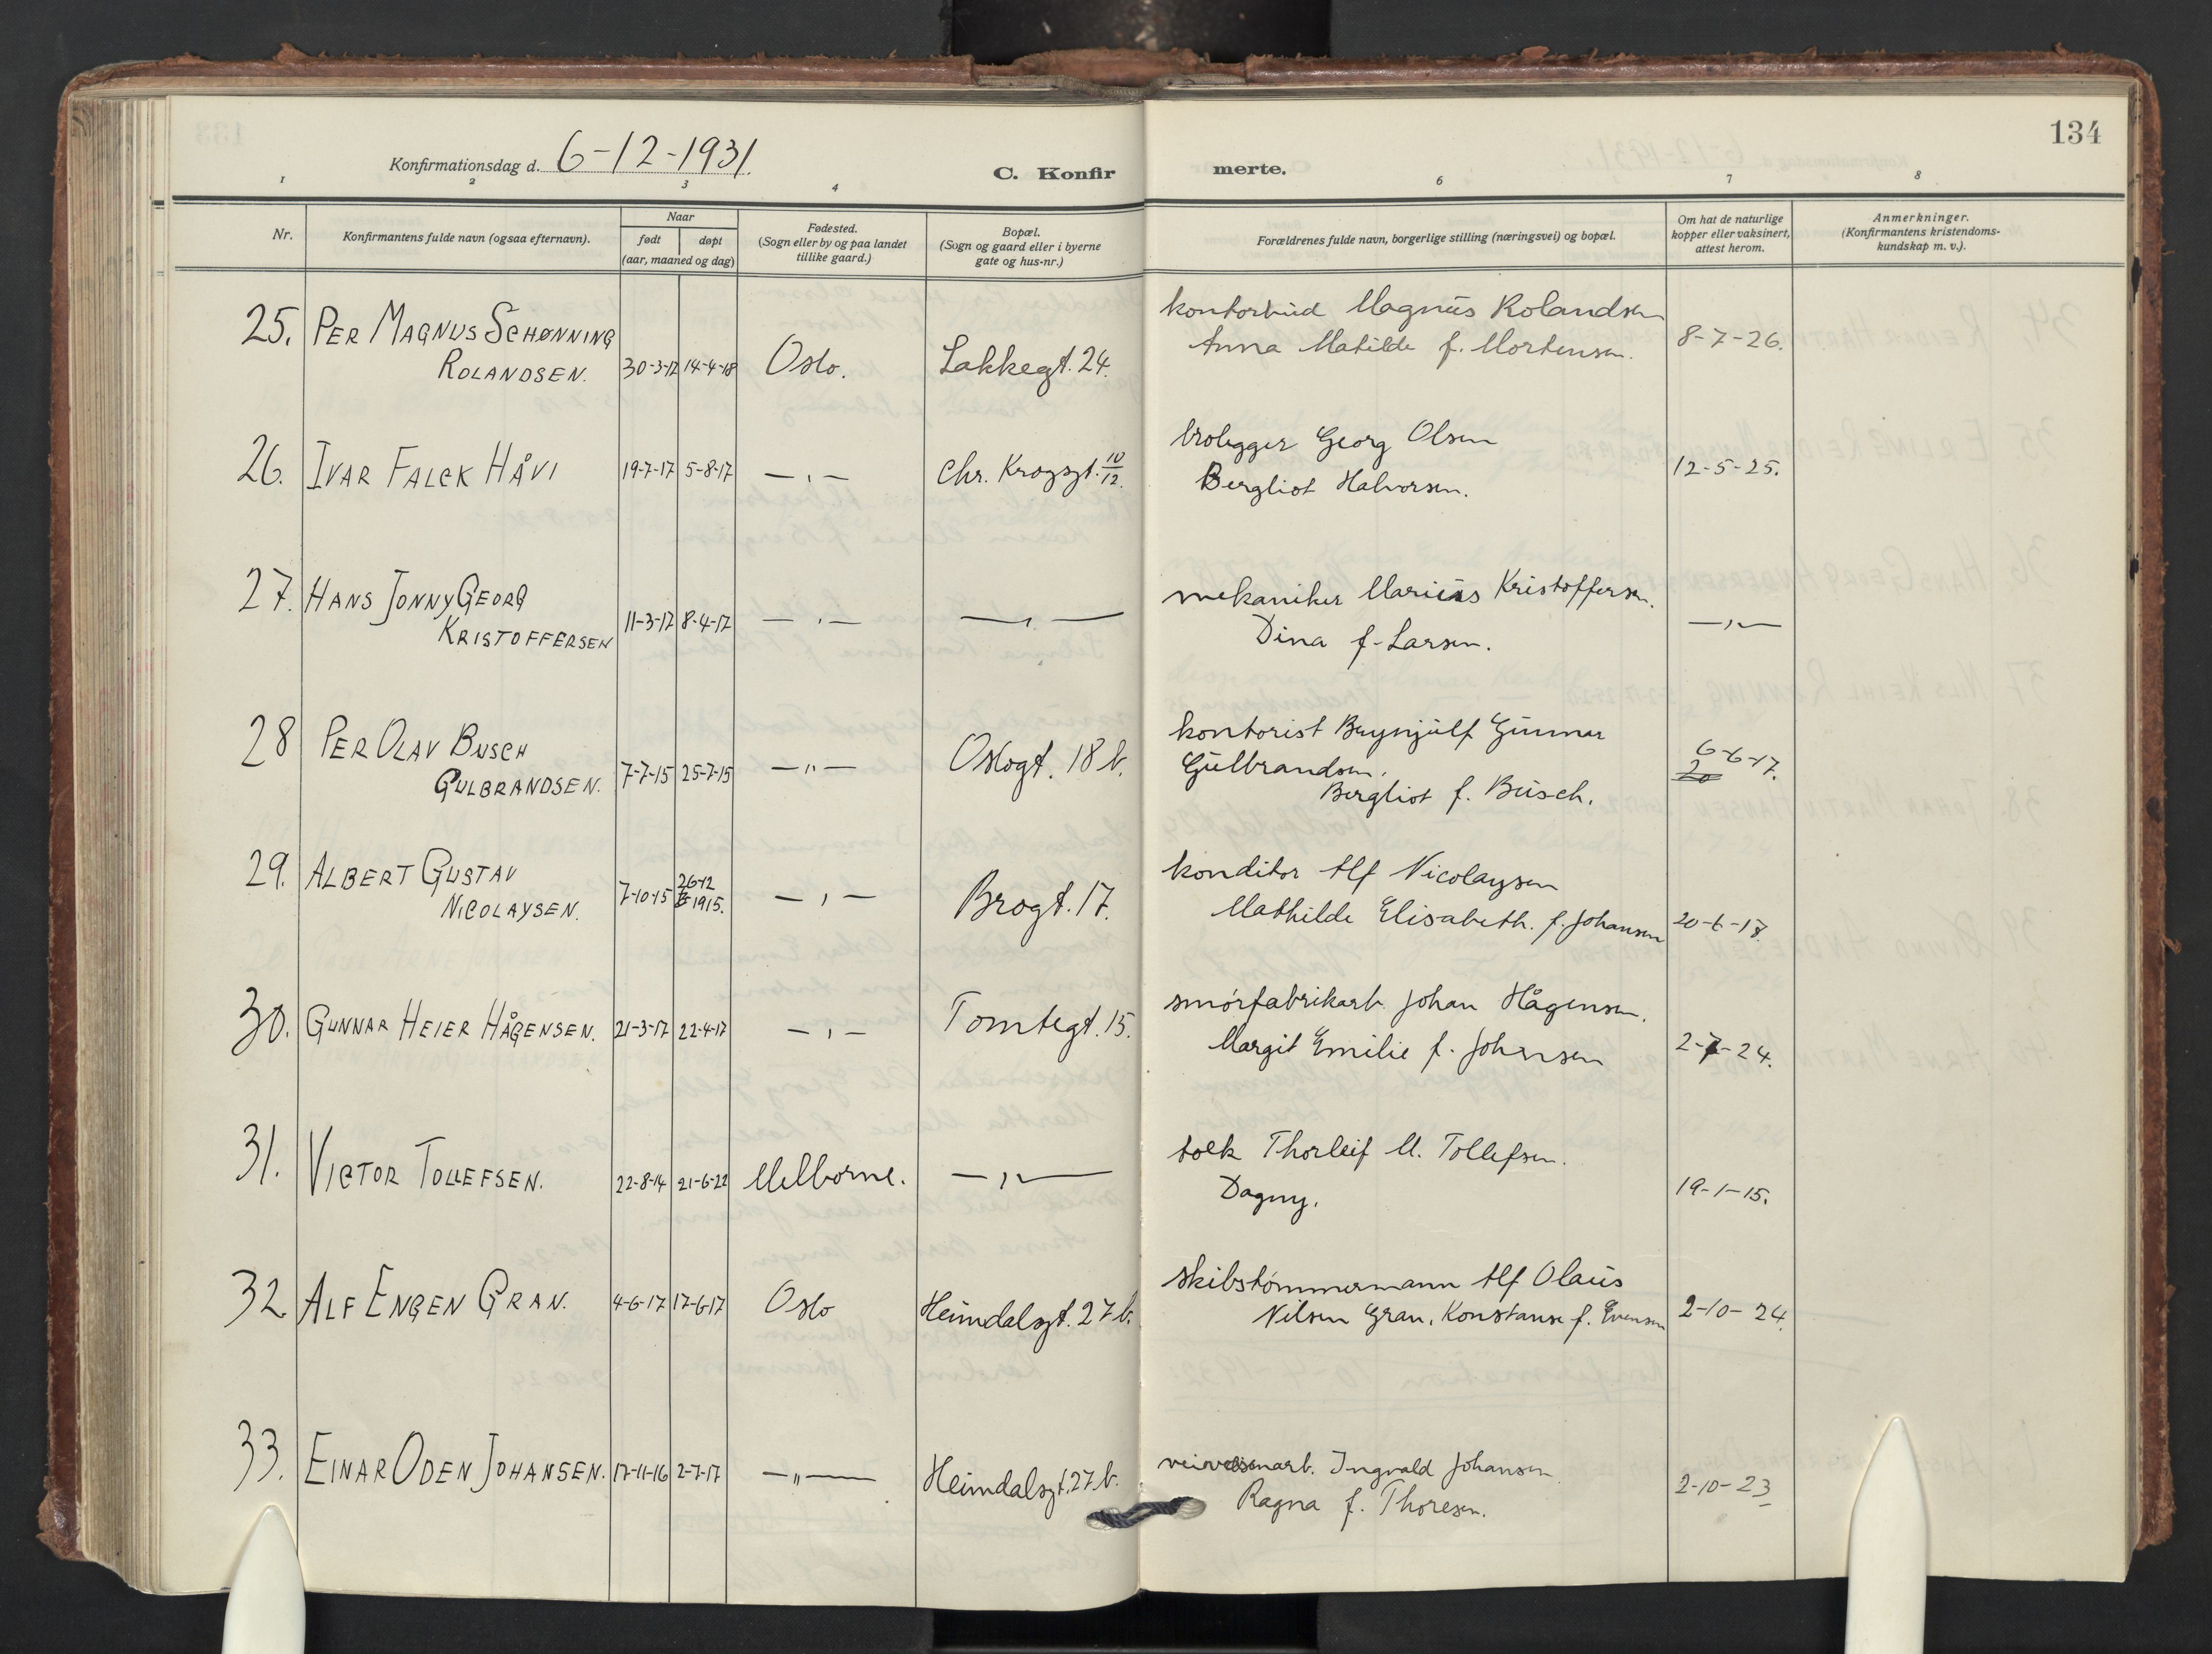 134
Konfirmationsdag d. 6-12-1931.
C. Konfirmerte.
1 2 3 4 6 7 8
Nr.
Konfirmantens fulde navn (ogsaa efternavn).
Naar
født
døpt
(aar, maaned og dag)
Fødested.
(Sogn eller by og paa landet
tillike gaard.)
Bopæl.
(Sogn og gaard eller i byerne
gate og hus-nr.)
Forældrenes fulde navn, borgerlige stilling (næringsvei) og bopæl.
Om hat de naturlige
kopper eller vaksinert,
attest herom.
Anmerkninger.
(Konfirmantens kristendoms-
kundskap m. v.).
25. PER MAGNUS SCHØNNING
ROLANDSEN. 30-3-17 14-4-18 Oslo. Lakkegt. 24.
kontorbud Magnus Rolandsen
Anna Matilde f. Mortensen. 8-7-26.
26. IVAR FALCK HÅVI 19-7-17 5-8-17 — , — Chr. Krogsgt. 10/12.
brolegger Georg Olsen
Bergliot Halvorsen. 12-5-25.
27. HANS JONNY GEORG
KRISTOFFERSEN 11-3-17 8-4-17 — , — — , —
mekaniker Marius Kristoffersen.
Dina f. Larsen. — , —
28 PER OLAV BUSCH
GULBRANDSEN. 7-7-15 25-7-15 — " — Oslogt. 18 b.
kontorist Brynjulf Gunnar
Gulbrandsen.
Bergliot f. Busch. 6-6-17.
29. ALBERT GUSTAV
NICOLAYSEN. 7-10-15 26-12 1915. — , — Brogt. 17.
konditor Alf Nicolaysen
Mathilde Elisabeth. f. Johansen 20-6-18.
30. GUNNAR HEIER HÅGENSEN. 21-3-17 22-4-17 — , — Tomtegt. 15.
smørfabrikarb. Johan Hågensen.
Margit Emilie f. Johansen 2-7-24.
31. VICTOR TOLLEFSEN. 22-8-14 21-6-22 Melborne. — , —
tolk Thorleif M. Tollefsen.
Dagny. 19-1-15.
32 ALF ENGEN GRAN. 4-6-17 17-6-17 Oslo Heimdalsgt. 27 b.
skibstømmermann Alf Olaus
Nilsen Gran. Konstanse f. Evensen 2-10-24.
33. EINAR ODEN JOHANSEN. 17-11-16 2-7-17 — " — Heimdalsgt. 27 b.
Ingvald Johansen
Ragna f. Thoresen. 2-10-23